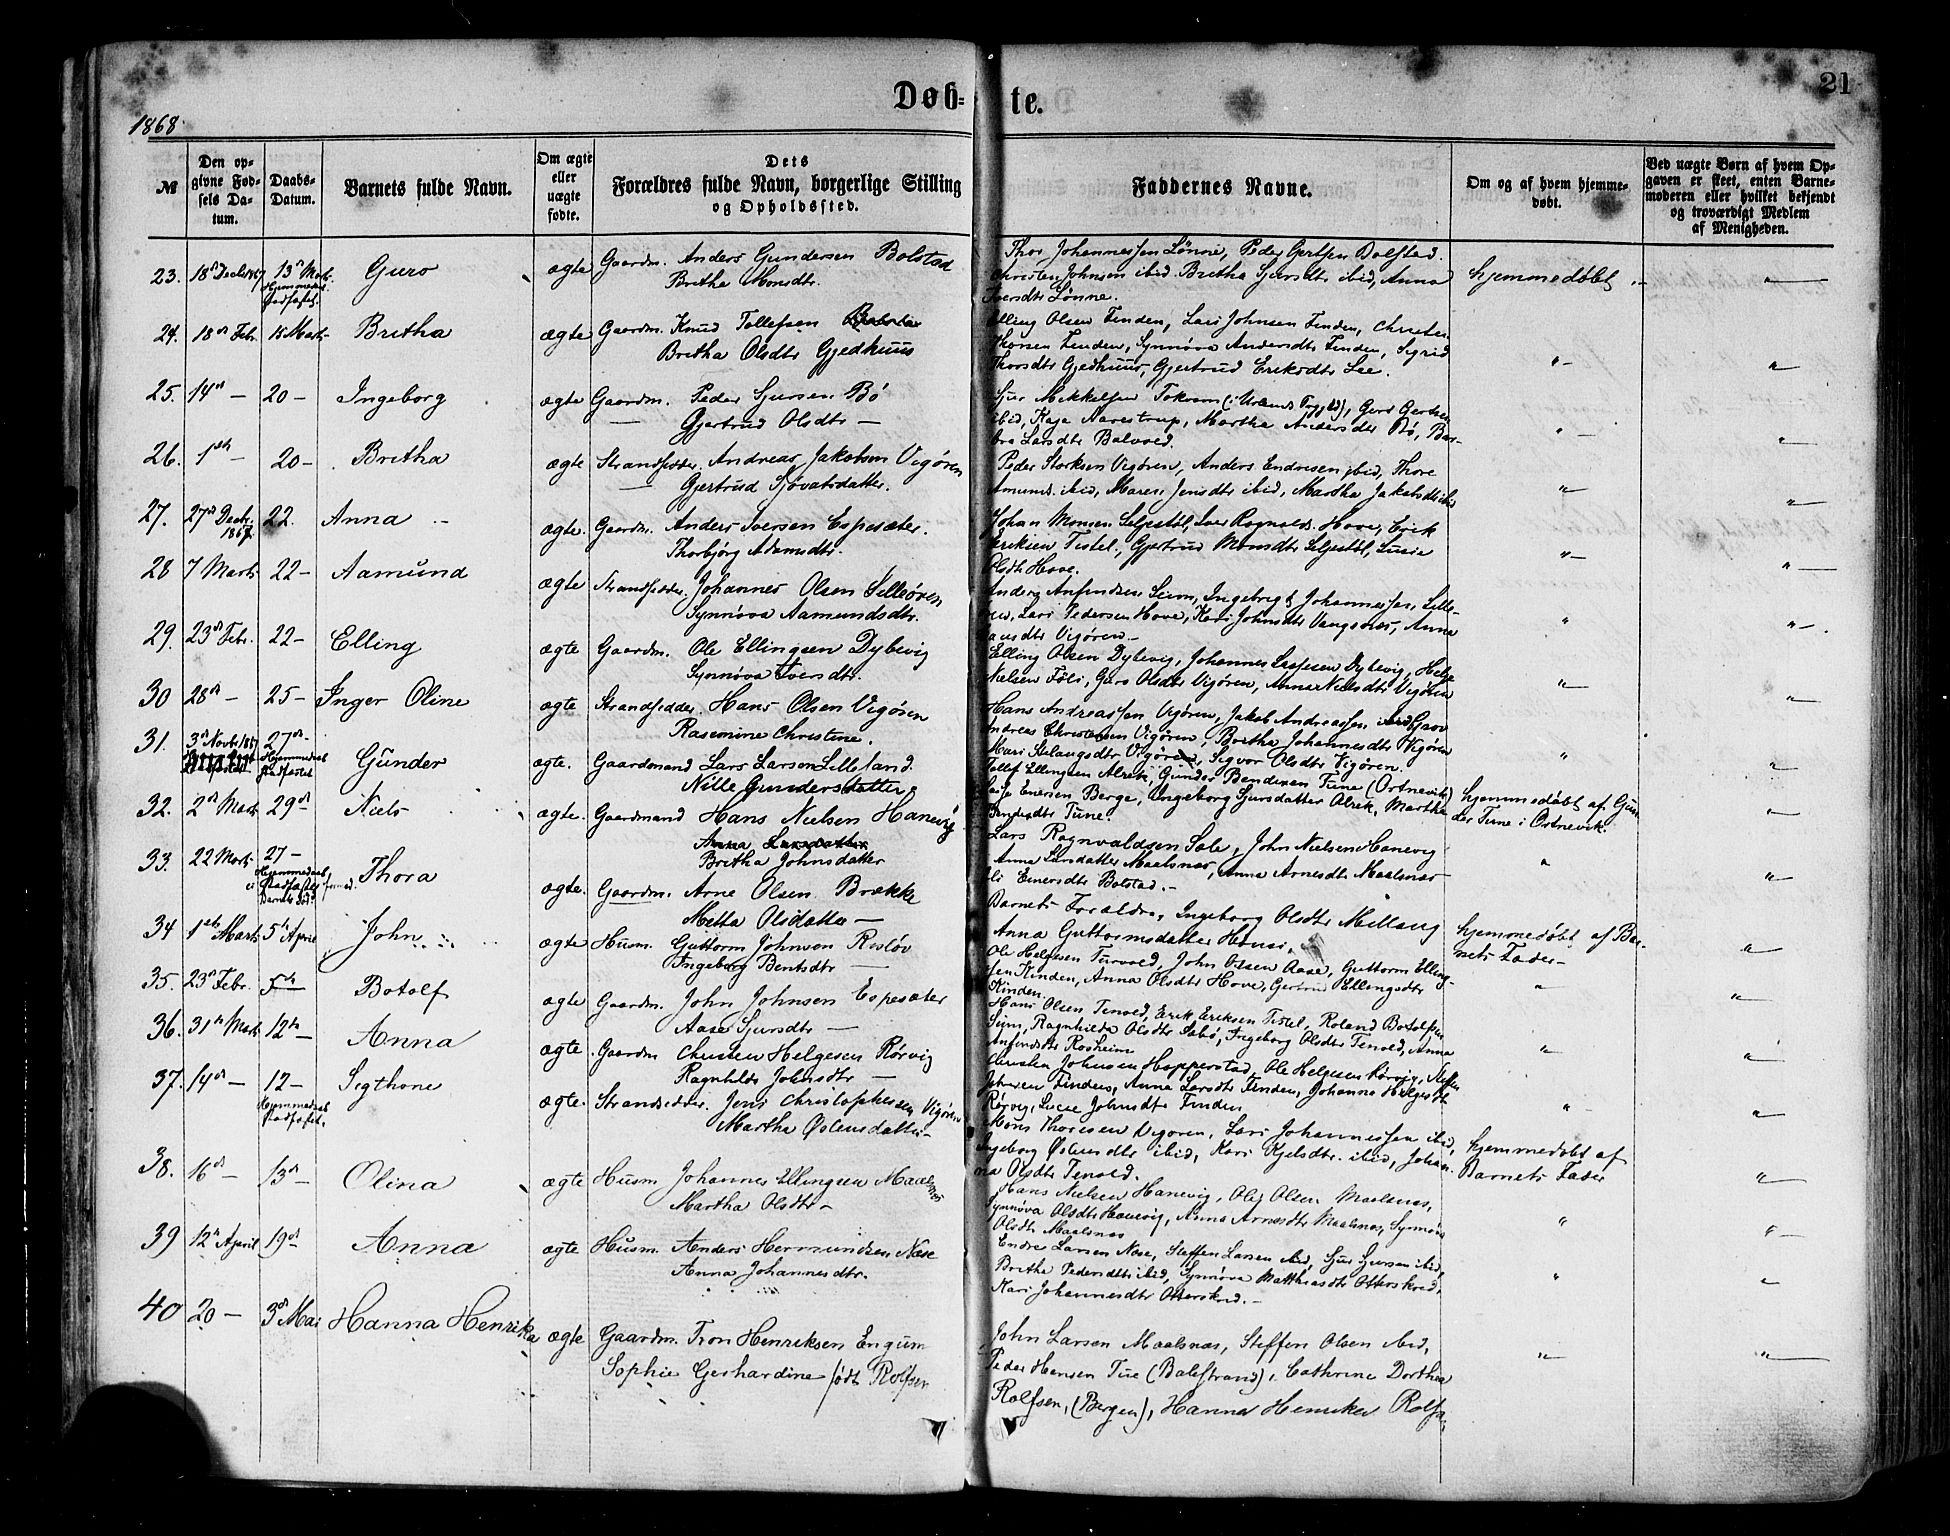 Døb=te.
21
1868
№
Den opgivne Fødsels Datum.
Daabs-Datum.
Barnets fulde Navn.
Om ægte eller uægte fødte.
Dets Forældres fulde Navn, borgerlige Stilling og Opholdssted.
Faddernes Navne.
Om og af hvem hjemmedøbt.
Ved uægte Børn af hvem Opgaven er skeet, enten Barnemoderen eller hvilket bekjendt og troværdigt Medlem af Menigheden.
23. 18de Decbr 1867 13de Marts Guro ægte Gaardm. Anders Gundersen Bolstad
Britha Monsdtr.
Thor Johannessen Lønne, Peder Gertsen Dolstad.
Christen Johnsen ibid. Britha Sjursdtr ibid, Anna
Iversdtr Lønne.
hjemmedøbt
24. 18de Febr. 15 Marts Britha ægte Gaardm. Knud Tollefsen
Britha Olsdtr Gjedhuus
Elling Olsen Finden, Lars Johnsen Finden, Christen
Thorsen Finden, Synnøva Andersdtr Finden, Sigrid
Thorsdtr Gjedhuus, Gjertrud Eriksdtr Lee.
25. 14de — 20 — Ingeborg ægte Gaardm. Peder Sjursen Bö
— Gjertrud Olsdtr —
Sjur Mikkelsen Tokvam
ibid, Kaja Navestrup, Martha Andersdtr Bö, Bar-
bra Larsdtr Bolvoed.
26. 1ste — 20 — Britha ægte Strandsidder. Andreas Jakobsen Vigören
— Gjertrud Sjovatsdatter.
Peder Storksen Vigören, Anders Endresen ibid, Thore
Amunds. ibid, Maren Jensdtr ibid, Martha Jakobsdtr ibid
27. 27de Decbr. 1867. 22. Anna ægte. Gaardm. Anders Iversen Espesæter.
Thorbjörg Adamsdtr.
Johan Monsen Seljestöl, Iver Rognalds. Hove, Erik
Eriksen Tistel, Gjertrud Monsdtr Seljestöl, Lusie
Olsdtr Hove.
28 7 Marts 22 — Aamund ægte Strandsidder. Johannes Olsen Lilleören
Synnöva Aamundsdtr.
Anders Anfindsen Seim, Ingebrigt Johannessen Lille-
ören, Lars Pedersen Hove, Kari Johnsdtr Vangsnes, Anna
Hansdtr Vigören —
29. 23de Febr. 22 — Elling ægte Gaardm. Ole Ellingsen Dybevig
Synnöva Iversdtr.
Elling Olsen Dybevig, Johannes Lassesen Dybevig, Helge
Nielsen Föli, Guro Olsdtr Vigören, Anna Nielsdtr Vigören
30 28de — 25 — Inger Oline ægte Strandsidder. Hans Olsen Vigören
Rasemine Christine.
Hans Andreassen Vigören, Jakob Andreassen
Andreas Christensen Vigören, Britha Johannesdtr Vigören
Mari Vigören, Sigvor Olsdtr Vigören.
31. 3de Novbr 1867 27de — Hjemmedaab Stadfæstet Gunder ægte. Gaardmand Lars Larsen Lilleland.
Nille Gundersdatter.
Tollef Ellingsen Alrek, Gunder Bendixen Tune (Ortnevik)
Lasse Enersen Berge, Ingeborg Sjursdatter Alrek, Martha
Tune.
hjemmedøbt af Gun-
der Tune i Ortnevik.
32. 2den Marts 29de Niels ægte. Gaardmand Hans Nielsen Hanevig
Anna Larsdatter
Britha Johnsdatter
Lars Ragnvaldsen Sale, John Nielsen Hanevig
Anna Larsdatter Maalsnæs, Anna Arnesdtr Maalsnæs
Eli Einersdtr Bolstad. —
33. 22 Marts 27 — Thora ægte. Gaardm. Arne Olsen Brække
Metta Olsdatter —
Barnets Forældre, Ingeborg Olsdtr Millang
Anna Guttormsdatter
hjemmedøbt af Bar-
nets Fader —
34 1ste Marts 5te April John ægte Husm. Guttorm Johnsen Reslöv
Ingeborg Bentsdtr —
Ole Helgesen Turvold, John Olsen Aase, Guttorm Elling-
sen Kinden, Anna Olsdtr Hove, Gertrud Ellingsdtr
Kinden.
35. 23de Febr. 5te Botolf ægte Gaardm. John Johnsen Espesæter
Aase Sjursdtr —
Hans Olsen Tenold, Erik Eriksen Tistel, Roland Botolfsen
Seim, Ragnhilda Olsdtr Sabö, Ingeborg Olsdtr Tenold, Anna
Anfindsdtr Rosheim
36. 31te Marts 12te Anna ægte Gaardm Christen Helgesen Rörvig
Ragnhilda Johnsdtr —
Christen Johnsen Hopperstad, Ole Helgesen Rörvig, Steffen
Johnsen Finden, Anna Larsdtr Finden, Johanna Helgesdtr
Rörvig, Lucie Johnsdtr Finden
37. 14de — 12 — Hjemmedaab stadfæst. Sigthone ægte. Strandsidder. Jens Christophersen Vigören
Martha Östensdatter —
Mons Thoresen Vigören, Lars Johannessen ibid,
Ingeborg Östensdtr ibid, Kari Kjelsdtr. ibid, Johan-
na Olsdtr Tenold.
hjemmedøbt af
Barnets Fader
38. 16de — 13de Olina ægte Husm Johannes Ellingsen Maalsnæs
Martha Olsdtr —
Hans Nielsen Hanevig, Ole Olsen Maalsnæs,
Synnöva Olsdtr Hanevig, Anna Arnesdtr Maalsnæs, Synnöva
Olsdtr Maalsnæs
39 12te April 19de Anna ægte Husm. Anders Hermundsen Nese
Anna Johannesdtr.
Endre Larsen Nese, Steffen Larsen ibid, Sjur Sjursen ibid,
Britha Pedersdtr ibid, Synnöva Matthiasdtr Otterskred,
Kari Johannesdtr Otterskred. —
40 20 — 3de Mai Hanna Henrika ægte Gaardm. Tron Henriksen Engum
Sophie Gerhardine født Rolfsen
John Larsen Maalsnæs, Steffen Olsen ibid,
Peder Hansen Tue (Balestrand), Cathrine Dorthea
Rolfsen, (Bergen), Hanna Henrika Rolfsen